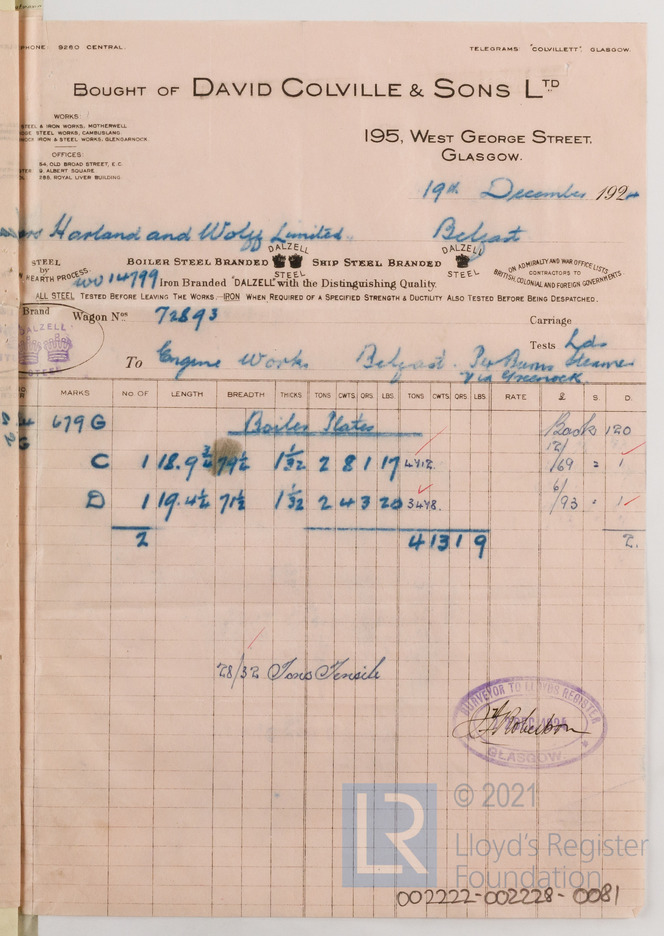 PHONE 9260 CENTRAL. TELEGRAMS "COLVILLETT", GLASGOW.
BOUGHT OF DAVID COLVILLE & SONS LTD
WORKS:
STEEL & IRON WORKS, MOTHERWELL
STEEL WORKS, CAMBUSLANG
IRON & STEEL WORKS, GLENGARNOCK.
OFFICES:
54, OLD BROAD STREET, E.C
9, ALBERT SQUARE
288, ROYAL LIVER BUILDING.
195, WEST GEORGE STREET,
GLASGOW.
19th December 1924
Harland and Wolff Limited. Belfast
STEEL by HEARTH PROCESS.
BOILER STEEL BRANDED DALZELL STEEL SHIP STEEL BRANDED DALZELL STEEL
ON ADMIRALTY AND WAR OFFICE LISTS
CONTRACTORS TO
BRITISH, COLONIAL AND FOREIGN GOVERNMENTS.
WO 14799 Iron Branded "DALZELL" with the Distinguishing Quality.
ALL STEEL TESTED BEFORE LEAVING THE WORKS.—IRON WHEN REQUIRED OF A SPECIFIED STRENGTH & DUCTILITY ALSO TESTED BEFORE BEING DESPATCHED.
Brand Wagon Nos 72893 Carriage
DALZELL STEEL
Tests Lds
To Engine Works Belfast. Per Burns Steamer
Via Greenock
MARKS No OF LENGTH BREADTH THICKS TONS CWTS QRS. LBS. TONS CWTS. QRS. LBS. RATE £ S. D.
679 G Boiler Plates Back 120
12/
C 1 18.9 3/4 79 1/2 1 5/32 2 8 1 17 4412. /69 = 1
6/
D 1 19.4 1/2 71 1/2 1 5/32 2 4 3 20 3478. /93 = 1
2 4 13 1 9 2.
28/32 Tons Tensile
SURVEYOR TO LLOYDS REGISTER
J Robertson
GLASGOW
LR
© 2021
Lloyd's Register
Foundation
002222-002228-0081